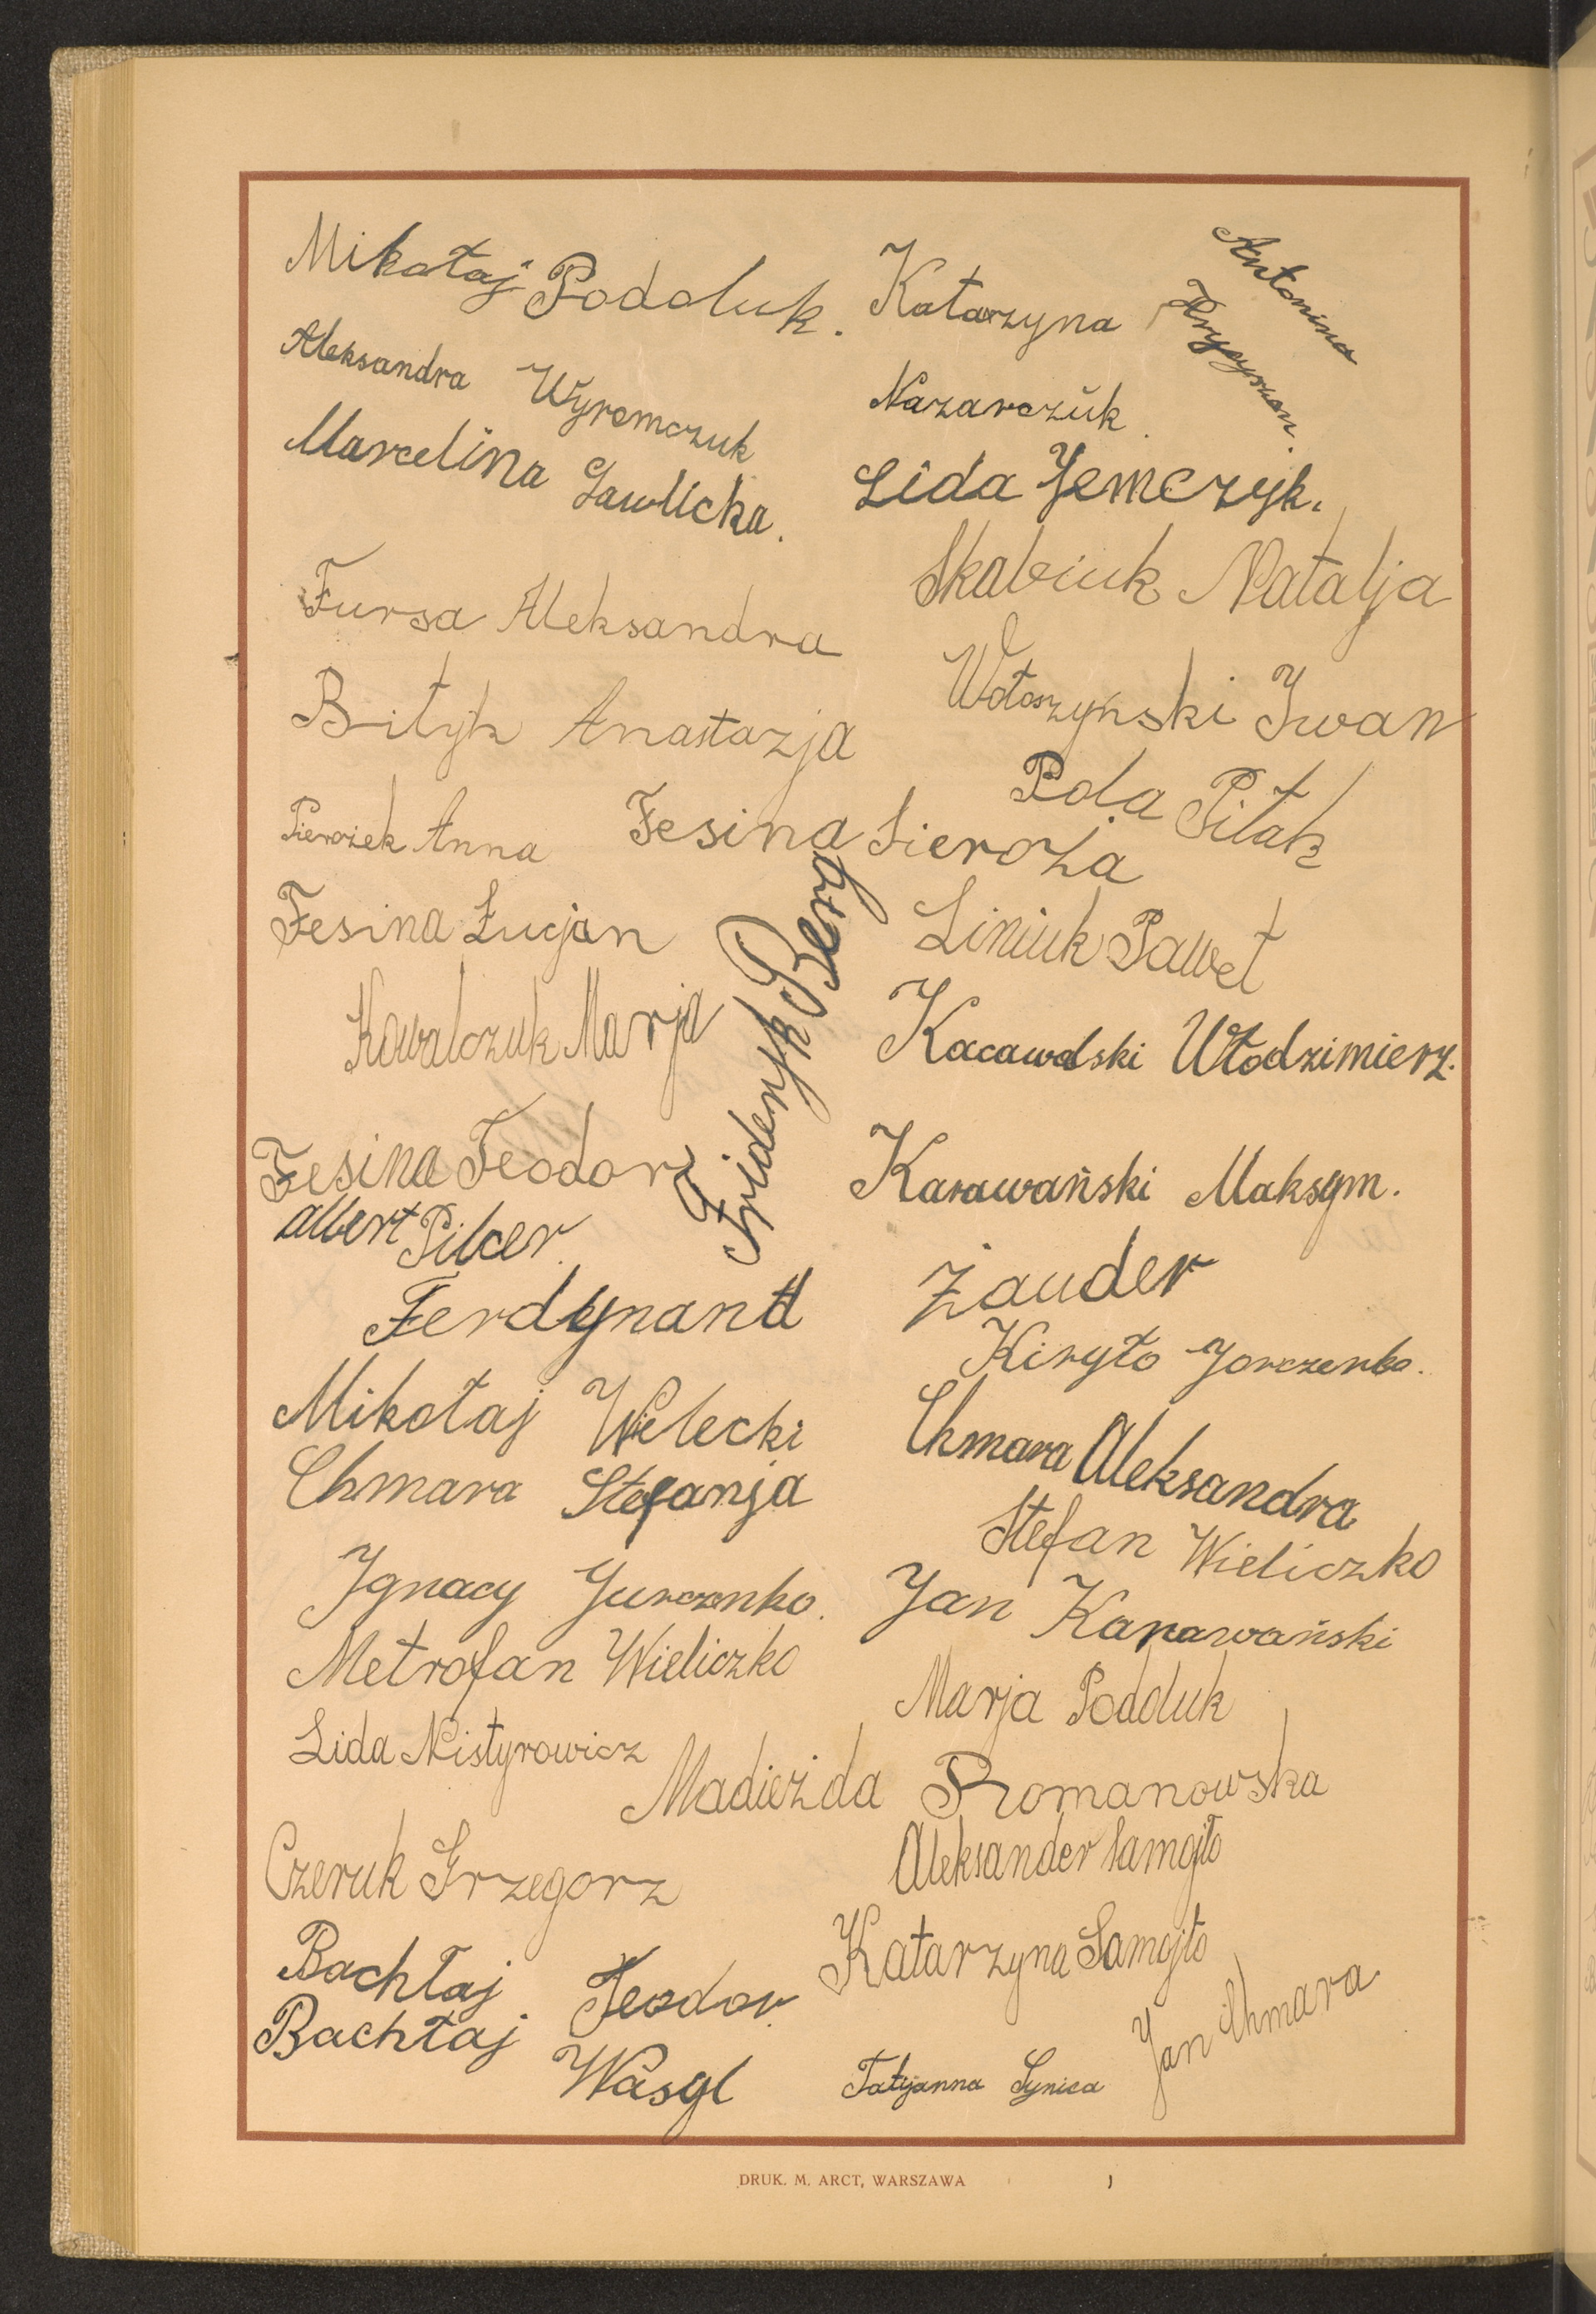 Mikołaj Podoluk. Katarzyna
Nazarczuk
Antonina
Aleksandra Wyremczuk
Marcelina Gawlicka.
Lida Jemczyk.
Fursa Aleksandra
Skabiuk Natalja
Bityk Anastazja
Wołoszyński Iwan
Pola Pitak
Pierożek Anna
Fesina Sieroża
Fesina Łucjan
Frideryk Berg
Liniuk Paweł
Kowalczuk Marja
Kacawalski Włodzimierz.
Fesina Teodora
Karawański Maksym.
Albert Pilcer.
Ferdynand Zauder
Kiryło Jorczenko.
Mikołaj Wielecki
Chmara Aleksandra
Chmara Stefanja
Stefan Wieliczko
Ignacy Jurczenko.
Jan Karawański
Metrofan Wieliczko
Marja Podoluk
Lida Nistyrowicz
Nadieżda Romanowska
Czeruk Grzegorz
Aleksander Samojło
Katarzyna Samojło
Bachłaj Teodor.
Bachłaj Wasyl
Tatjanna Synica
Jan Chmara
DRUK. M. ARCT, WARSZAWA